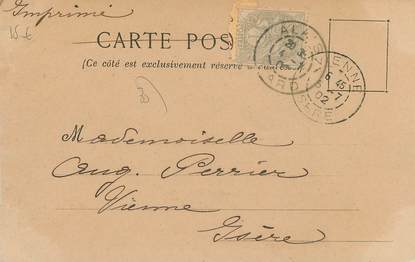 Imprimé
15 €
CARTE POS
(Ce côté est exclusivement réservé à
VIENNE
6 45
02
ISÈRE
Mademoiselle
Aug. Perrier
Vienne
Isère